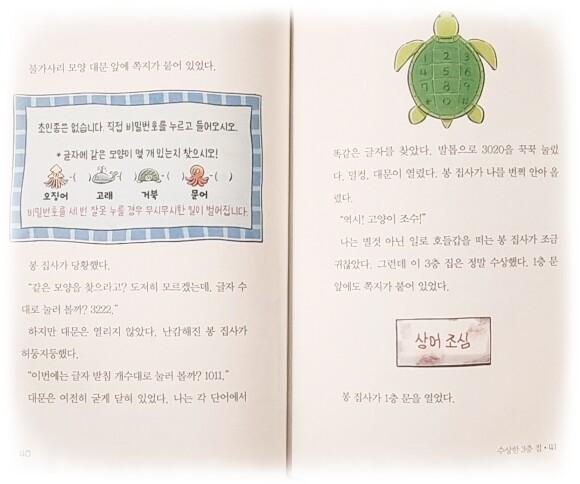 불가사리 모양 대문 앞에 쪽지가 붙어 있었다.
초인종은 없습니다. 직접 비밀번호를 누르고 들어오시오.
* 글자에 같은 모양이 몇 개 있는지 찾으시오!
-( ) -( ) -( ) -( )
오징어 고래 거북 문어
비밀번호를 세 번 잘못 누를 경우 무시무시한 일이 벌어집니다.
봉 집사가 당황했다.
“같은 모양을 찾으라고? 도저히 모르겠는데. 글자 수
대로 눌러 볼까? 3222.”
하지만 대문은 열리지 않았다. 난감해진 봉 집사가
허둥지둥했다.
“이번에는 글자 받침 개수대로 눌러 볼까? 1011.”
대문은 여전히 굳게 닫혀 있었다. 나는 각 단어에서
40
1 2 3
4 5 6
7 8 9
* 0 #
똑같은 글자를 찾았다. 발톱으로 3020을 꾹꾹 눌렀
다. 덜컹, 대문이 열렸다. 봉 집사가 나를 번쩍 안아 올
렸다.
“역시! 고양이 조수!”
나는 별것 아닌 일로 호들갑을 떠는 봉 집사가 조금
귀찮았다. 그런데 이 3층 집은 정말 수상했다. 1층 문
앞에도 쪽지가 붙어 있었다.
상어 조심
봉 집사가 1층 문을 열었다.
수상한 3층 집 • 41